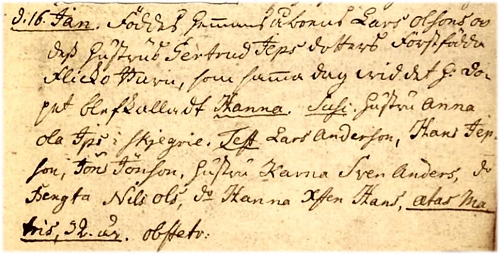 d. 16. Jan. Föddes hemmans åboens Lars Olsons oc
deß hustrus Gertrud Jeps dotters Förstfödda
Flicko Barn, som sama dag wid det h: do-
pet blef kalladt Hanna. Susc: hustru Anna
ola Jps i skjegrie. Test Lars Anderson, Hans Jep-
son, Jöns Jönson, hustru Karna Sven Anders, do
Bengta Nils Ols, do Hanna Xsten Hans, ætas Ma-
tris, 32. år. obstetr: